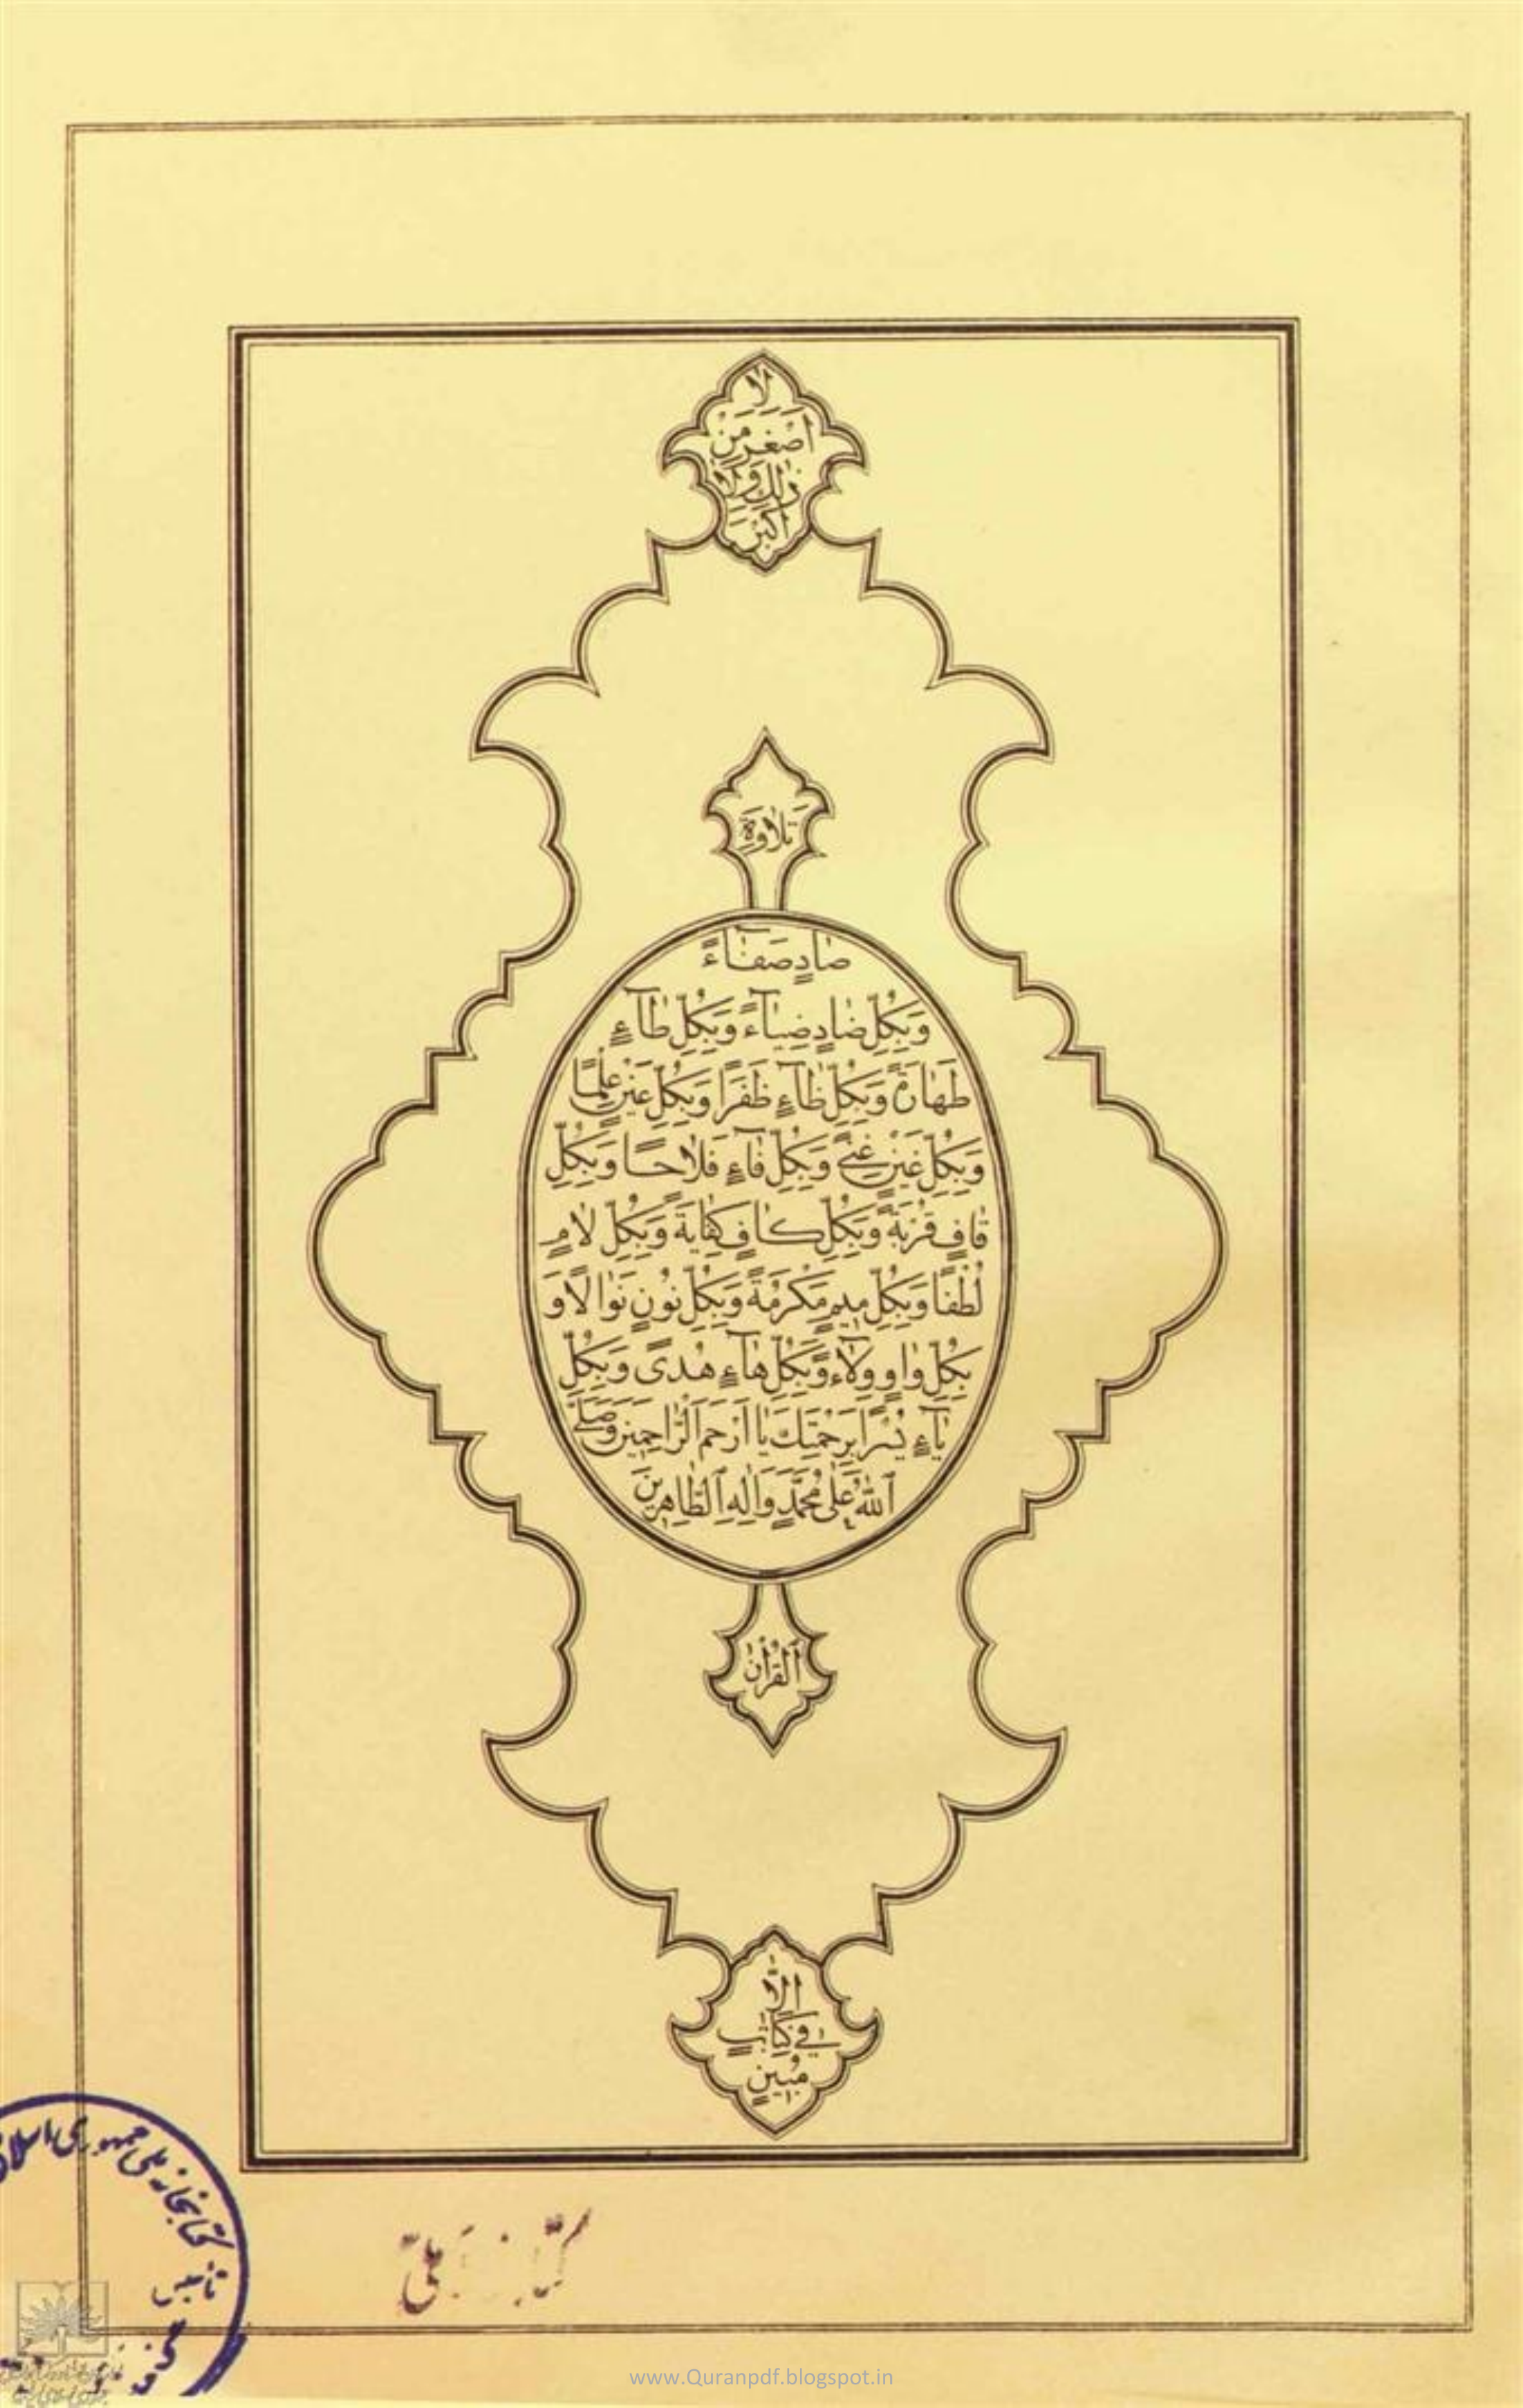 لَا
أَصْغَرَ مِنْ
ذٰلِكَ وَلَا
أَكْبَرَ
تِلَاوَةِ
صَادٍ صَفَاءً
وَبِكُلِّ ضَادٍ ضِيَاءً وَبِكُلِّ طَاءٍ
طَهَارَةً وَبِكُلِّ ظَاءٍ ظَفَرًا وَبِكُلِّ عَيْنٍ عِلْمًا
وَبِكُلِّ غَيْنٍ غِنًى وَبِكُلِّ فَاءٍ فَلَاحًا وَبِكُلِّ
قَافٍ قُرْبَةً وَبِكُلِّ كَافٍ كِفَايَةً وَبِكُلِّ لَامٍ
لُطْفًا وَبِكُلِّ مِيمٍ مَكْرُمَةً وَبِكُلِّ نُونٍ نَوَالًا وَ
بِكُلِّ وَاوٍ وِلَاءً وَبِكُلِّ هَاءٍ هُدًى وَبِكُلِّ
يَاءٍ يُسْرًا بِرَحْمَتِكَ يَا أَرْحَمَ الرَّاحِمِينَ وَصَلَّى
اللّٰهُ عَلَى مُحَمَّدٍ وَآلِهِ الطَّاهِرِينَ
الْقُرْآنِ
إِلَّا
فِي كِتَابٍ
مُبِينٍ
کتابخانه ملی جمهوری اسلامی
www.Quranpdf.blogspot.in